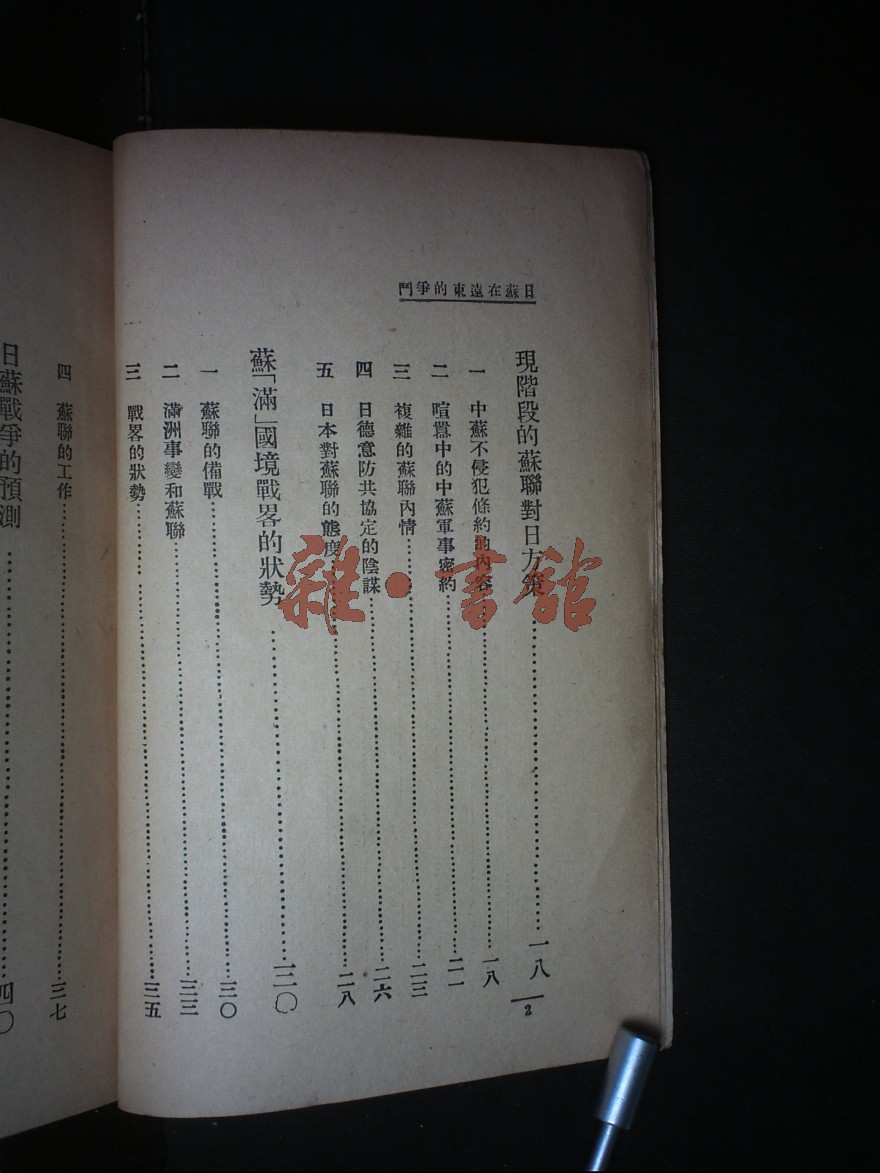 日蘇在遠東的爭鬥
現階段的蘇聯對日方策……一八
一 中蘇不侵犯條約的內容……一八
二 喧囂中的中蘇軍事密約……二一
三 複雜的蘇聯內情……二三
四 日德意防共協定的陰謀……二六
五 日本對蘇聯的態度……二八
蘇「滿」國境戰畧的狀勢……三〇
一 蘇聯的備戰……三〇
二 滿洲事變和蘇聯……三三
三 戰畧的狀勢……三五
2
四 蘇聯的工作……三七
日蘇戰爭的預測……四〇
雜·書館